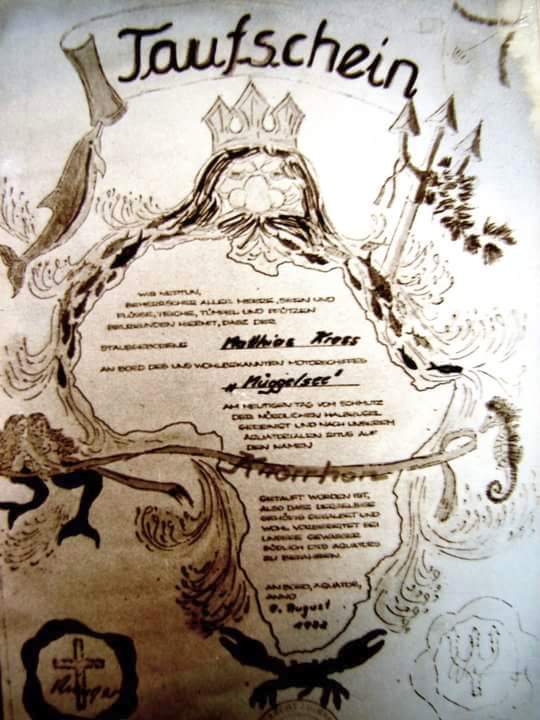 Taufschein
WIR NEPTUN,
BEHERRSCHER ALLER MEERE, SEEN UND
FLÜSSE, TEICHE, TÜMPEL UND PFÜTZEN
BEURKUNDEN HIERMIT, DASZ DER
STAUBGEBORENE Matthias Kress
AN BORD DES UNS WOHLBEKANNTEN MOTORSCHIFFES
„Müggelsee"
AM HEUTIGEN TAG VOM SCHMUTZ
DER NÖRDLICHEN HALBKUGEL
GEREINIGT UND NACH UNSEREM
ÄQUATORIALEN RITUS AUF
DEN NAMEN
GETAUFT WORDEN IST,
ALSO DASZ DERSELBIGE
GEHÖRIG GESALBET UND
WOHL VORBEREITET SEI
UNSERE GEWÄSSER
SÜDLICH DES ÄQUATORS
ZU BEFAHREN.
AN BORD, ÄQUATOR,
ANNO
9. August